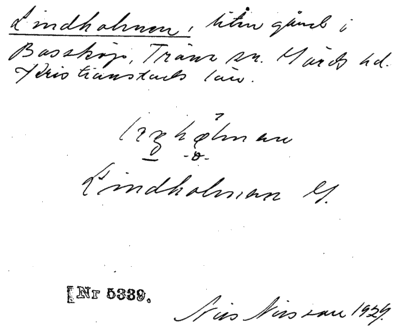 Lindholmen, liten gård i
Bossköp, Trane sn. Gärds hd.
Kristianstads län.
Lindholman G.
[Nr 5339.
Nils Nilsson 1929.